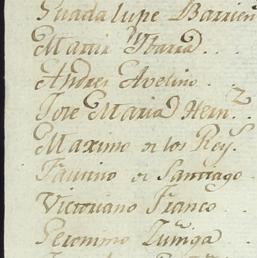 Guadalupe Barrien
Martin Ybarra
Andres Avelino
Jose Maria Hern.z
Maximo de los Rey.s
Faustino de Santiago
Victoriano Franco
Geronimo Zuñiga